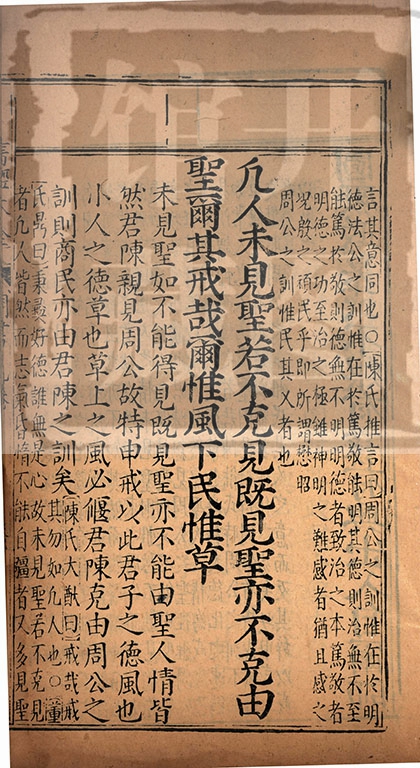 言其意同也○陳氏推言曰周公之訓惟在於明
德法公之訓惟在於篤敬能明其德則治無不至
能篤於敬則德無不明明德者致治之本篤敬者
明德之功至治之極雖神明之難感者猶且感之
况殷之頑民乎即所謂懋昭
周公之訓惟民其乂者也
凡人未見聖若不克見既見聖亦不克由
聖爾其戒哉爾惟風下民惟草
未見聖如不能得見既見聖亦不能由聖人情皆
然君陳親見周公故特申戒以此君子之德風也
小人之德草也草上之風必偃君陳克由周公之
訓則商民亦由君陳之訓矣
陳氏大猷曰戒哉戒
其勿如凡人也○董
氏鼎曰秉彞好德誰無是心故未見聖若不克見
者凡人皆然而志氣昏惰不能自彊者又多見聖